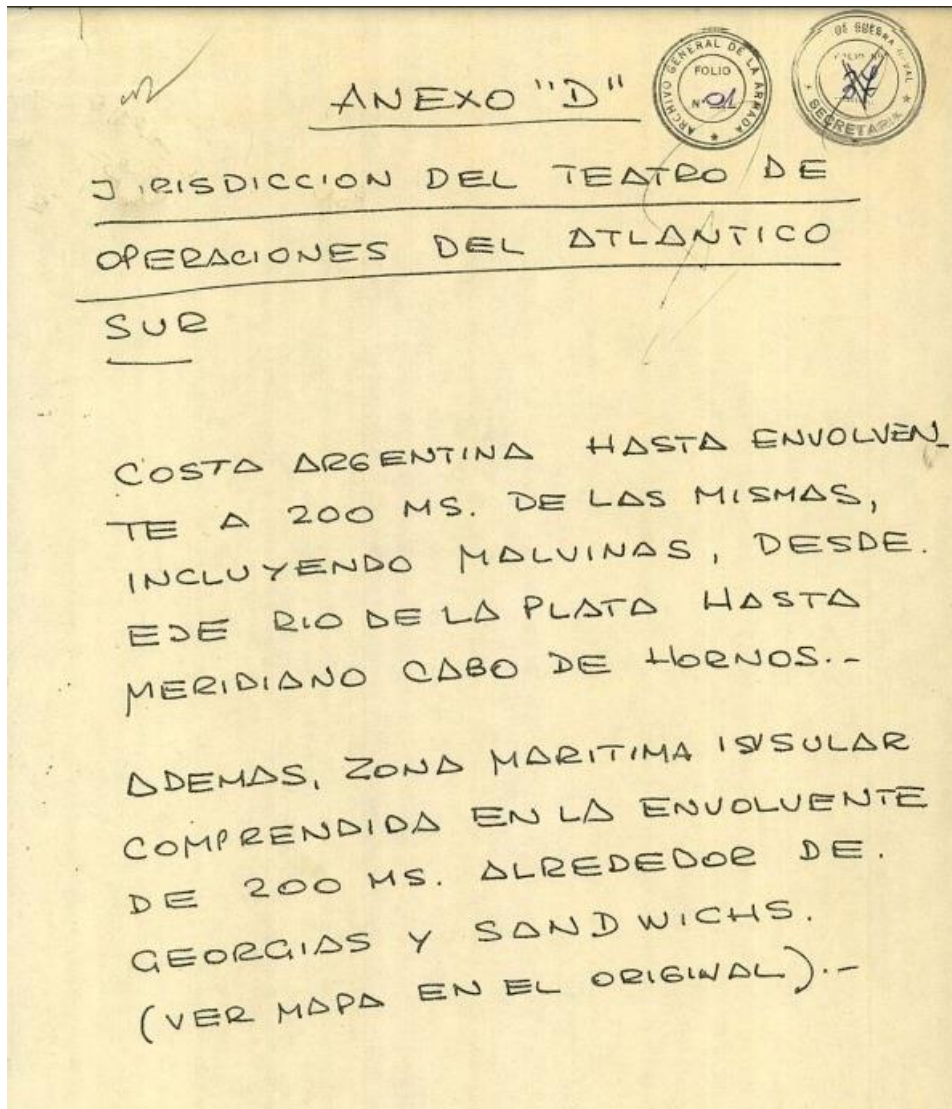 ANEXO "D"
ARCHIVO GENERAL DE LA ARMADA
FOLIO
Nº 01
DE GUERRA NAVAL
SECRETARIA
JURISDICCION DEL TEATRO DE
OPERACIONES DEL ATLANTICO
SUR
COSTA ARGENTINA HASTA ENVOLVEN_
TE A 200 MS. DE LAS MISMAS,
INCLUYENDO MALVINAS, DESDE.
EJE RIO DE LA PLATA HASTA
MERIDIANO CABO DE HORNOS.-
ADEMAS, ZONA MARITIMA INSULAR
COMPRENDIDA EN LA ENVOLVENTE
DE 200 MS. ALREDEDOR DE.
GEORGIAS Y SANDWICHS.
(VER MAPA EN EL ORIGINAL).-